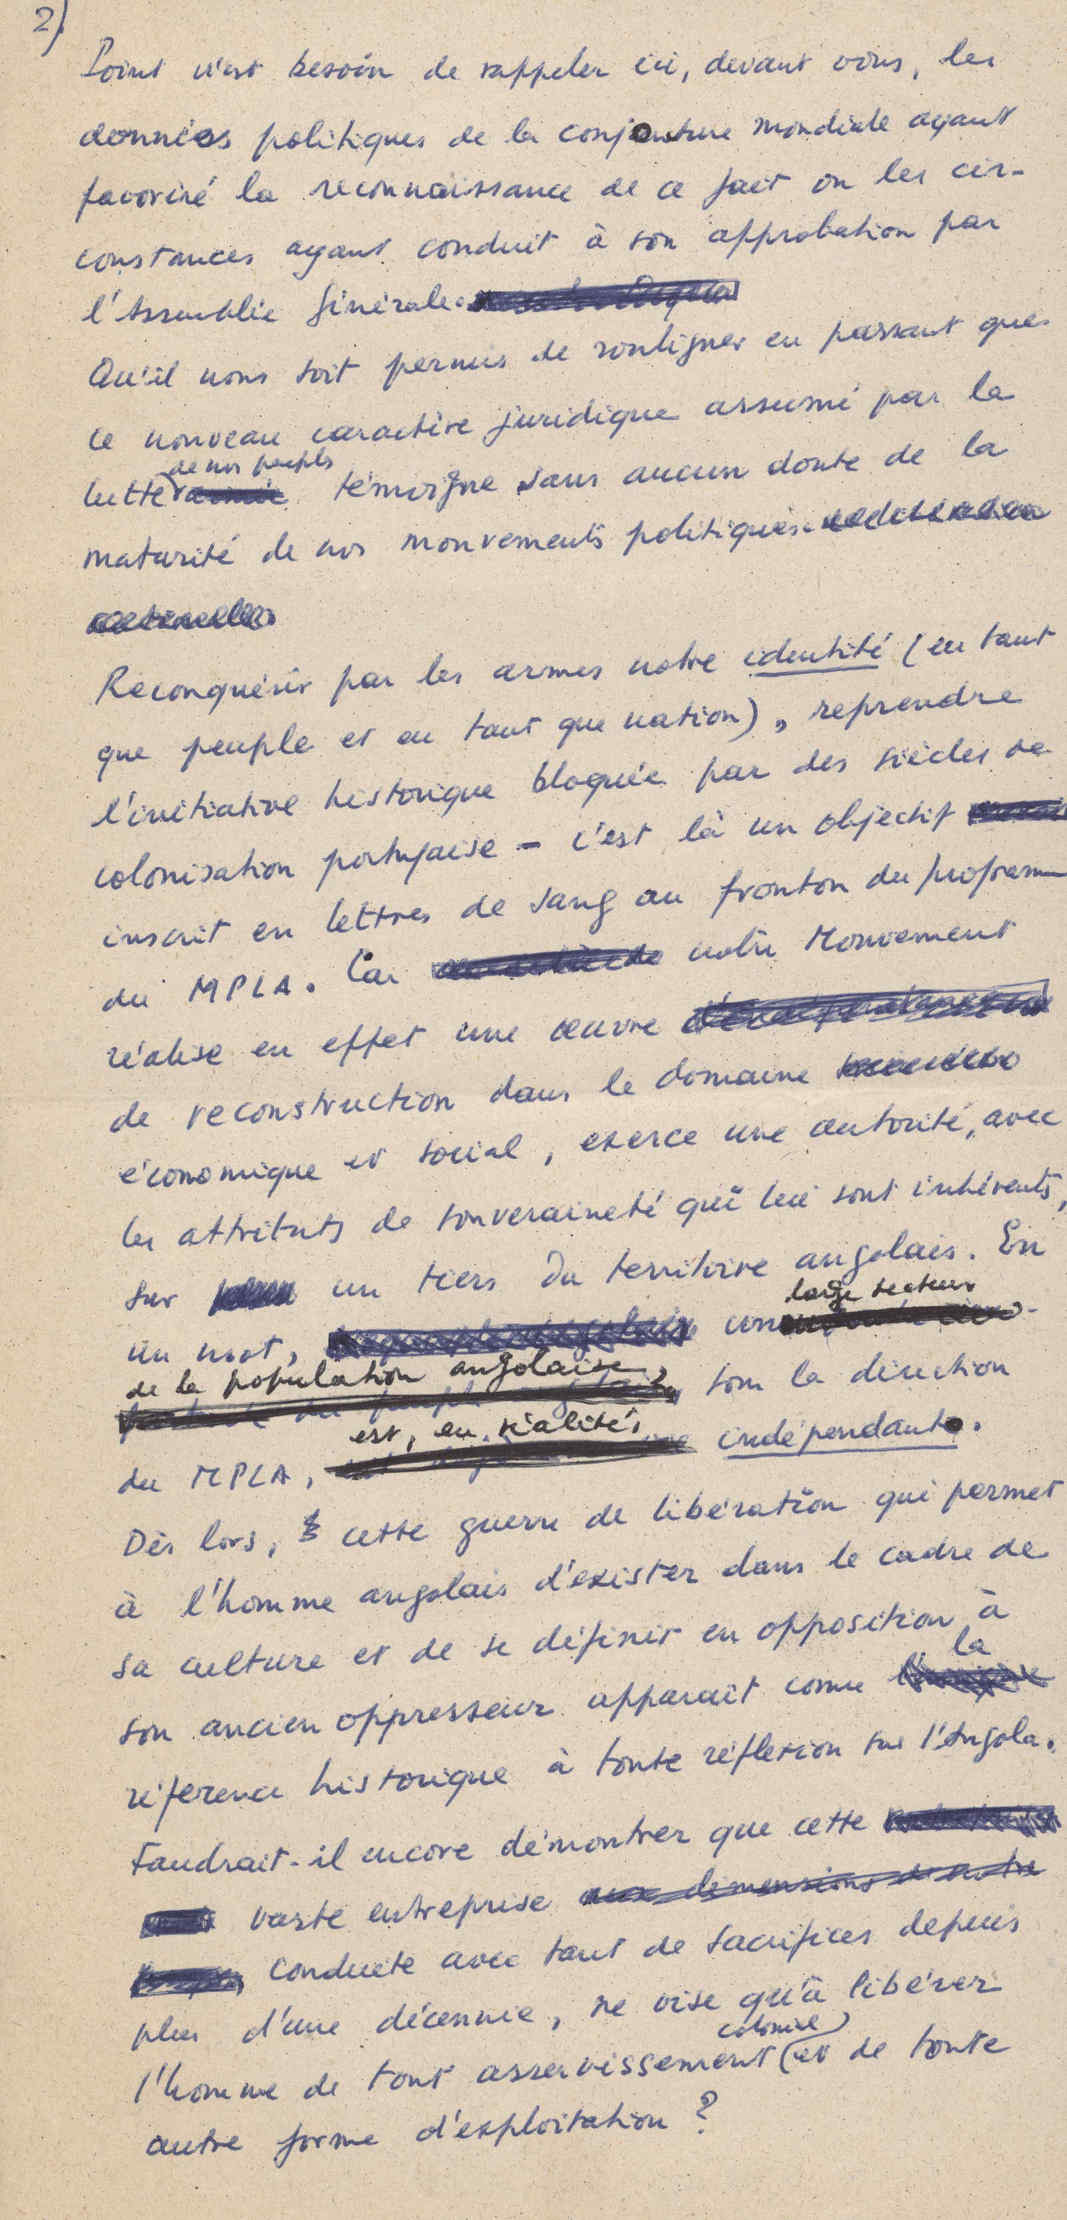 2).
Point n'est besoin de rappeler ici, devant vous, les
données politiques de la conjoncture mondiale ayant
favorisé la reconnaissance de ce fait ou les cir-
constances ayant conduit à son approbation par
l'Assemblée Générale.
Qu'il nous soit permis de souligner en passant que
ce nouveau caractère juridique assumé par la
de nos peuples
lutte témoigne sans aucun doute de la
maturité de nos mouvements politiques.
Reconquérir par les armes notre identité (en tant
que peuple et en tant que nation), reprendre
l'initiative historique bloquée par des siècles de
colonisation portugaise - c'est là un objectif
inscrit en lettres de sang au fronton du programme
du MPLA. Car notre Mouvement
réalise en effet une œuvre
de reconstruction dans le domaine
économique et social, exerce une autorité, avec
les attributs de souveraineté qui lui sont inhérents,
sur un tiers du territoire angolais. En
large secteur
un mot, un
de la population angolaise,
sous la direction
est, en réalité,
du MPLA, indépendant.
Dès lors, cette guerre de libération qui permet
à l'homme angolais d'exister dans le cadre de
sa culture et de se définir en opposition à
la
son ancien oppresseur apparait comme
référence historique à toute réflexion sur l'Angola.
Faudrait-il encore démontrer que cette
vaste entreprise aux dimensions de notre
conduite avec tant de sacrifices depuis
plus d'une décennie, ne vise qu'à libérer
colonial
l'homme de tout asservissement (et de toute
autre forme d'exploitation ?